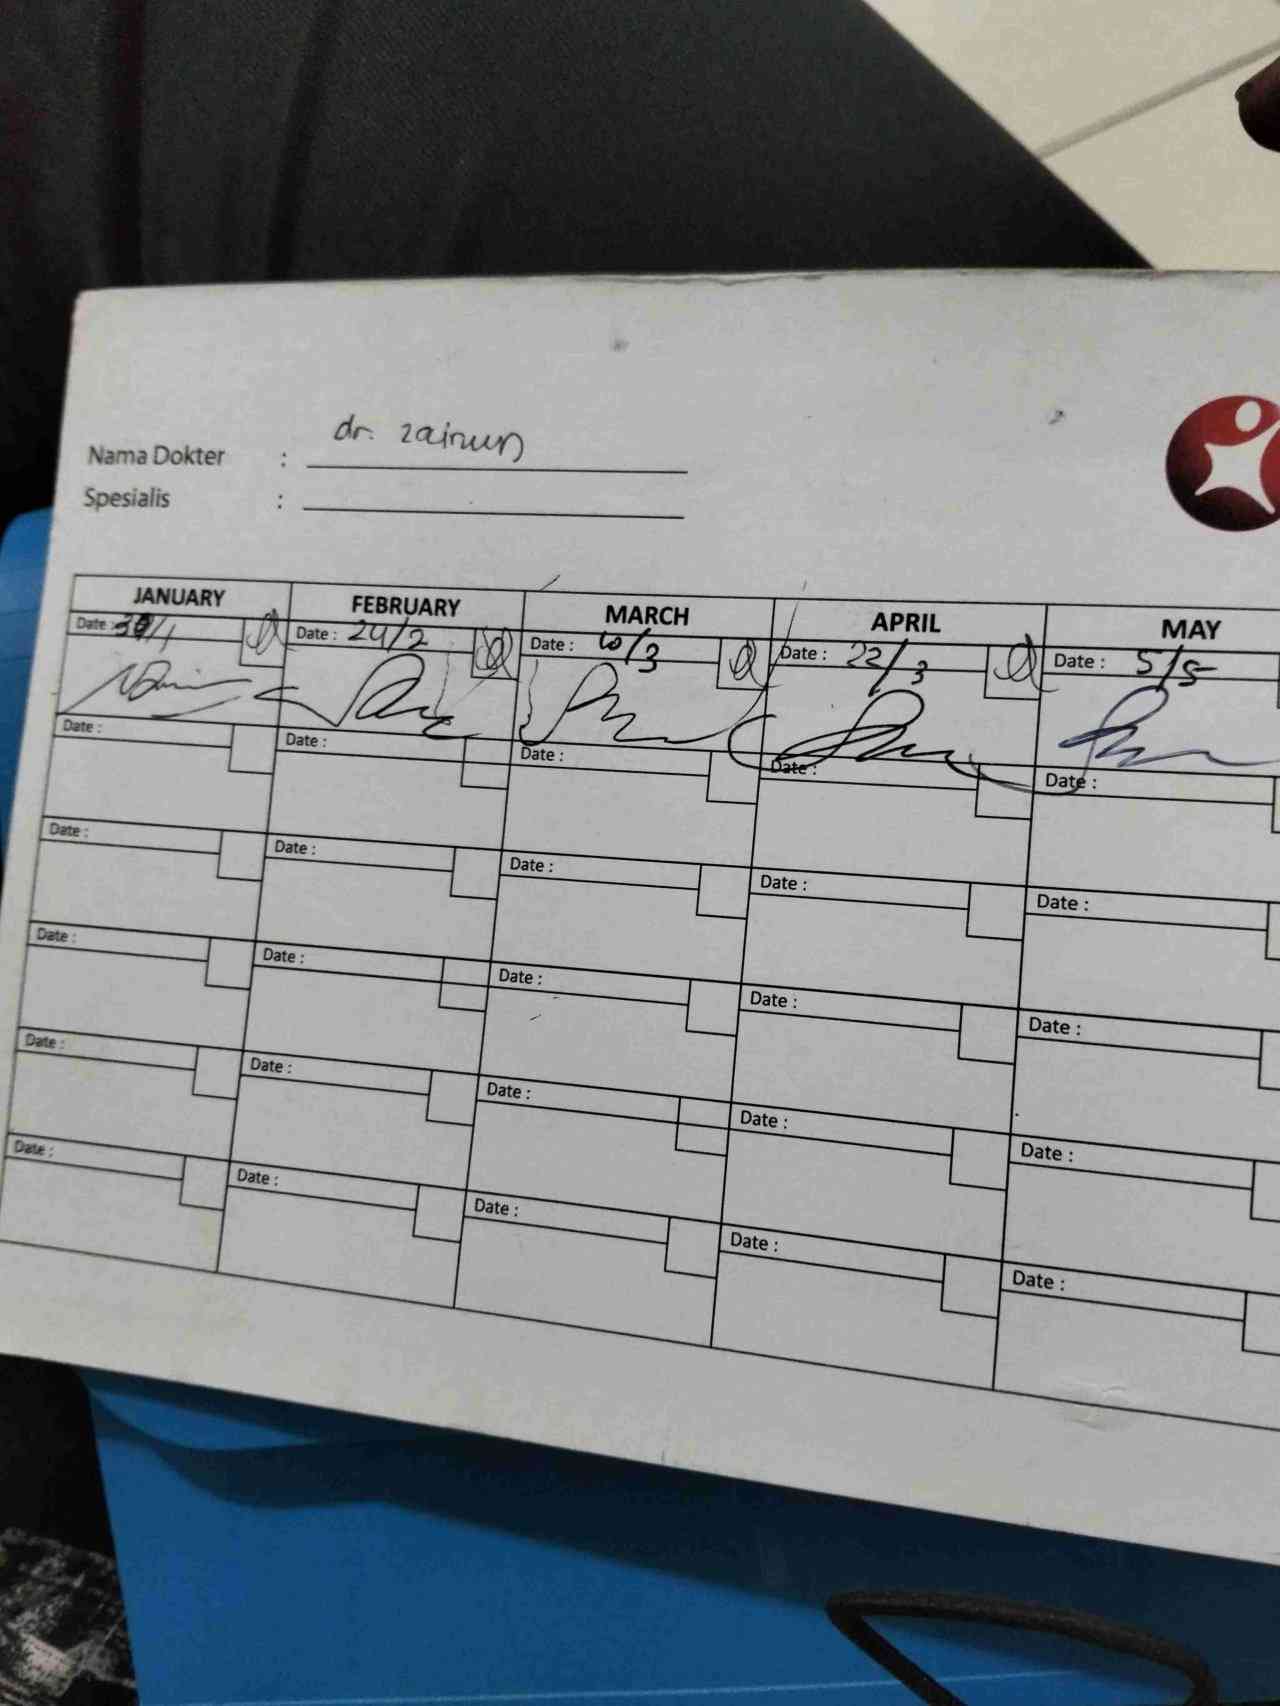 dr. zainun
Nama Dokter :
Spesialis :
JANUARY FEBRUARY MARCH APRIL MAY
Date : Date : 24/2 Date : 10/3 Date : 22/3 Date : 5/5
Date : Date : Date : Date : Date :
Date : Date : Date : Date : Date :
Date : Date : Date : Date : Date :
Date : Date : Date : Date : Date :
Date : Date : Date : Date : Date :